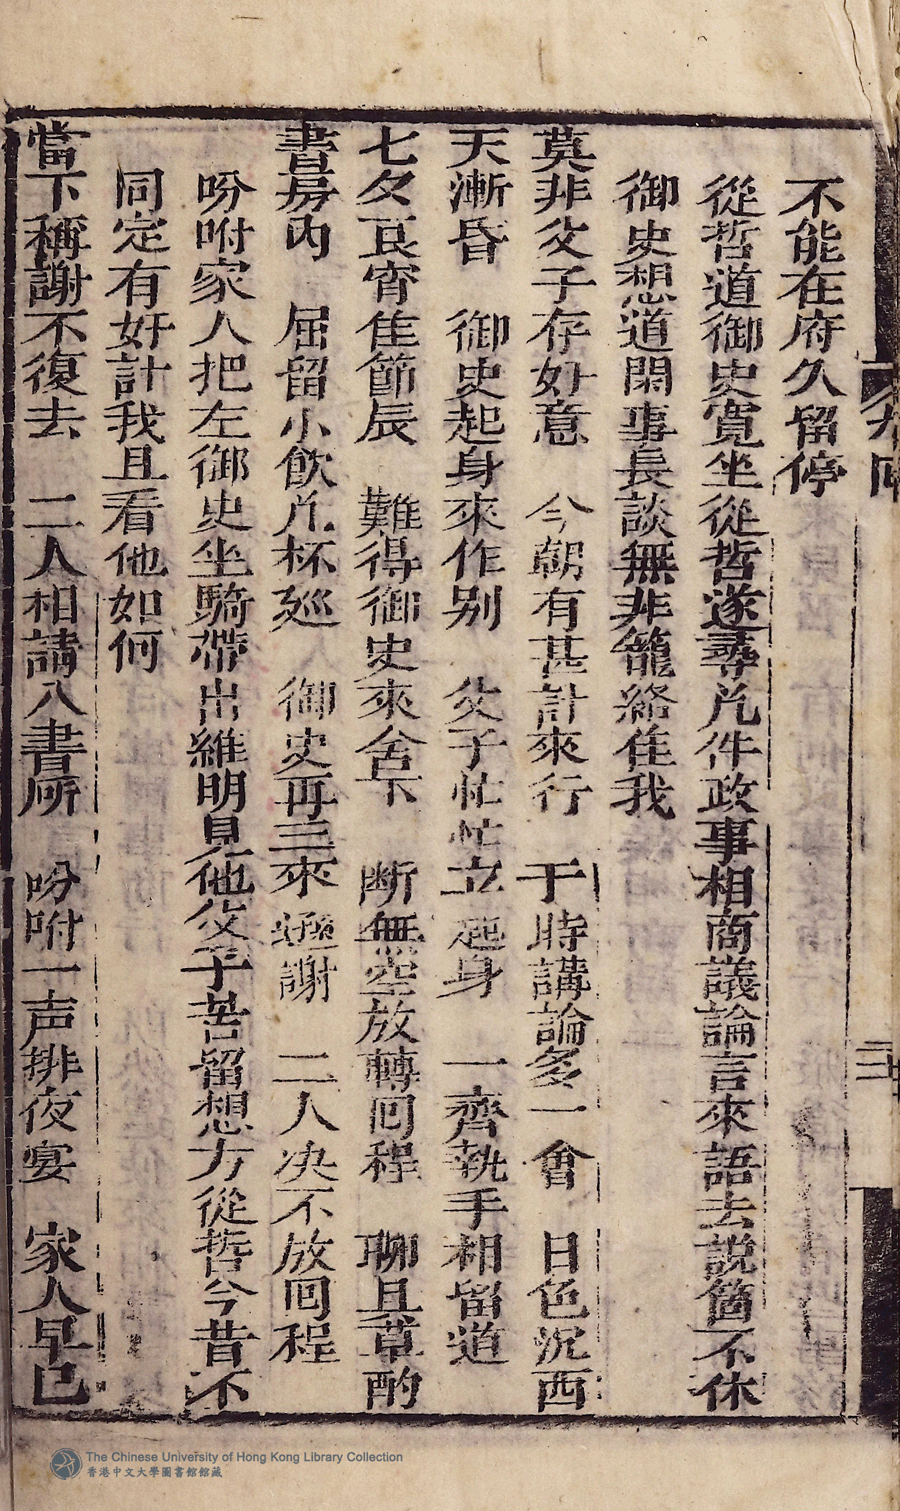 不能在府久留停
從哲道御史寬坐從哲遂尋凢件政事相商議論言來語去說箇不休
御史想道閑事長談無非籠絡隹我
莫非父子存好意 今朝有甚計來行 于時講論多一會 日色沉西
天漸昏 御史起身來作别 父子忙忙立起身 一齊執手相留道
七夕良宵隹節辰 難得御史來舍下 断無空放轉囘程 聊且草酌
書房內 屈留小飲凢杯廵 御史再三來遜謝 二人决不放囘程
吩咐家人把左御史坐騎帶出維明見他父子苦留想方從哲今昔不
同定有奸計我且看他如何
當下稱謝不復去 二人相請入書所 吩咐一声排夜宴 家人早已
The Chinese University of Hong Kong Library Collection
香港中文大學圖書館館藏